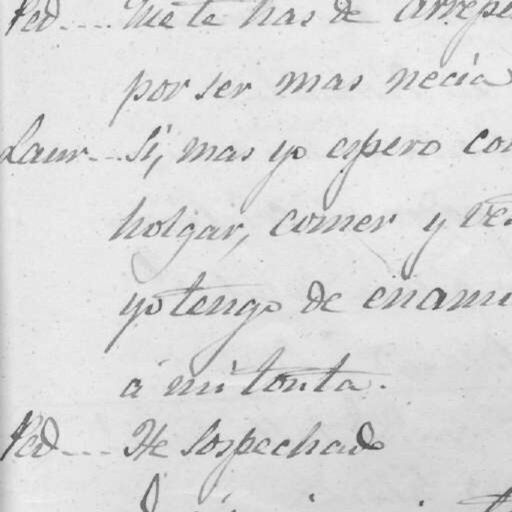 Ped.... Me te has de arrepe
por ser mas necia
Laur... Si, mas yo espero co
holgar, comer y ve
yo tengo de enam
á mi tonta.
Ped.... He sospechado